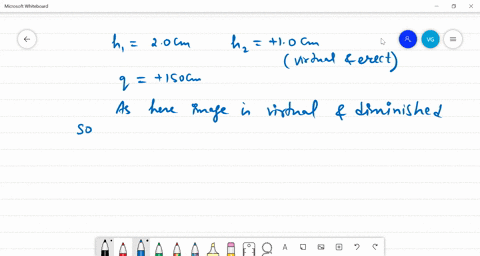 Microsoft Whiteboard
h₁ = 2.0 cm h₂ = +1.0 cm
VG
(virtual & erect)
q = +150 cm
As here image is virtual & diminished
so